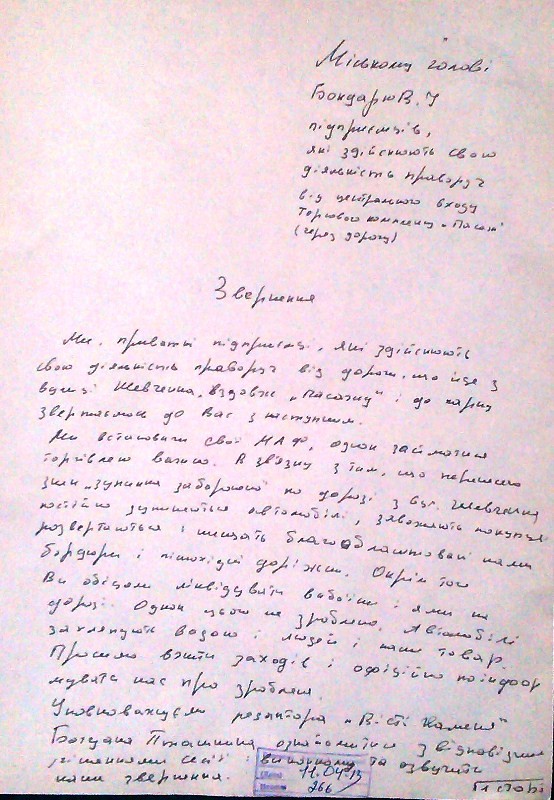 Міському голові
Бондарю В. І
підприємців,
які здійснюють свою
діяльність праворуч
від центрального входу
торгового комплексу „Пасаж"
(через дорогу)
Звернення
Ми, приватні підприємці, які здійснюють
свою діяльність праворуч від дороги, що йде з
вулиці Шевченка, вздовж „Пасажу" і до парку
звертаємось до Вас з наступним.
Ми встановили свої МАФ, однак займатися
торгівлею важко. В зв'язку з тим, що перенесено
знак „зупинка заборонена" по дорозі з вул. Шевченка
постійно зупиняються автомобілі, заважають покупцям
розвертаються і нищать благоблаштовані нами
бордюри і пішохідні доріжки. Окрім того
Ви обіцяли ліквідувати вибоїни і ями на
дорозі. Однак цього не зроблено. Автомобілі
захляпують водою і людей і наш товар.
Просимо вжити заходів і офіційно поінфор
мувати нас про зроблене.
Уповноважуєм редактора „Вісті Каменя"
Богдана Пташника ознайомитися з відповідними
рішеннями сесії і виконкому та озвучити
наше звернення.
11.04.13
266